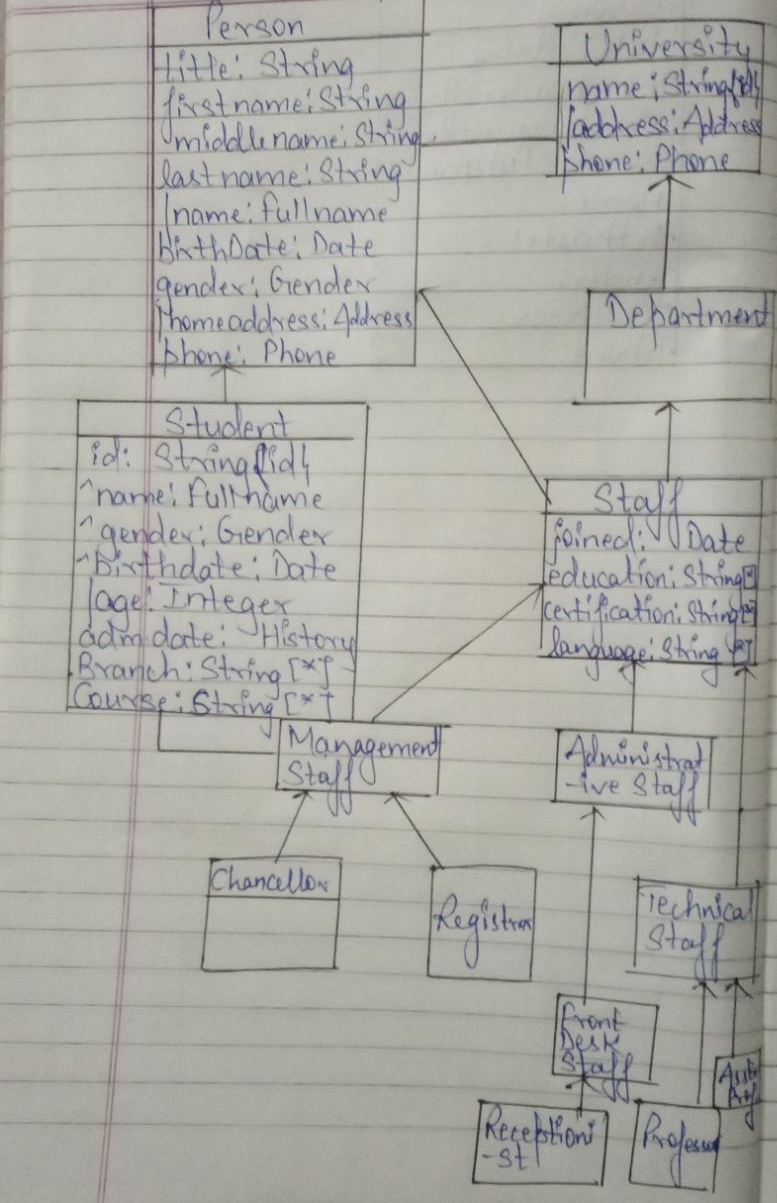 Person
title: String
firstname: String
middlename: String
lastname: String
/name: fullname
birthDate: Date
gender: Gender
/homeaddress: Address
phone: Phone
University
name: String{id}
/address: Address
phone: Phone
Department
Student
id: String{id}
^name: Fullname
^gender: Gender
^birthdate: Date
/age: Integer
adm.date: History
Branch: String [*]
Course: String [*]
Staff
joined: Date
education: String[*]
certification: String[*]
language: String [*]
Management
Staff
Administrat
-ive Staff
Chancellor
Registrar
Technical
Staff
Front
Desk
Staff
Asst
Prof
Receptioni
-st
Professor